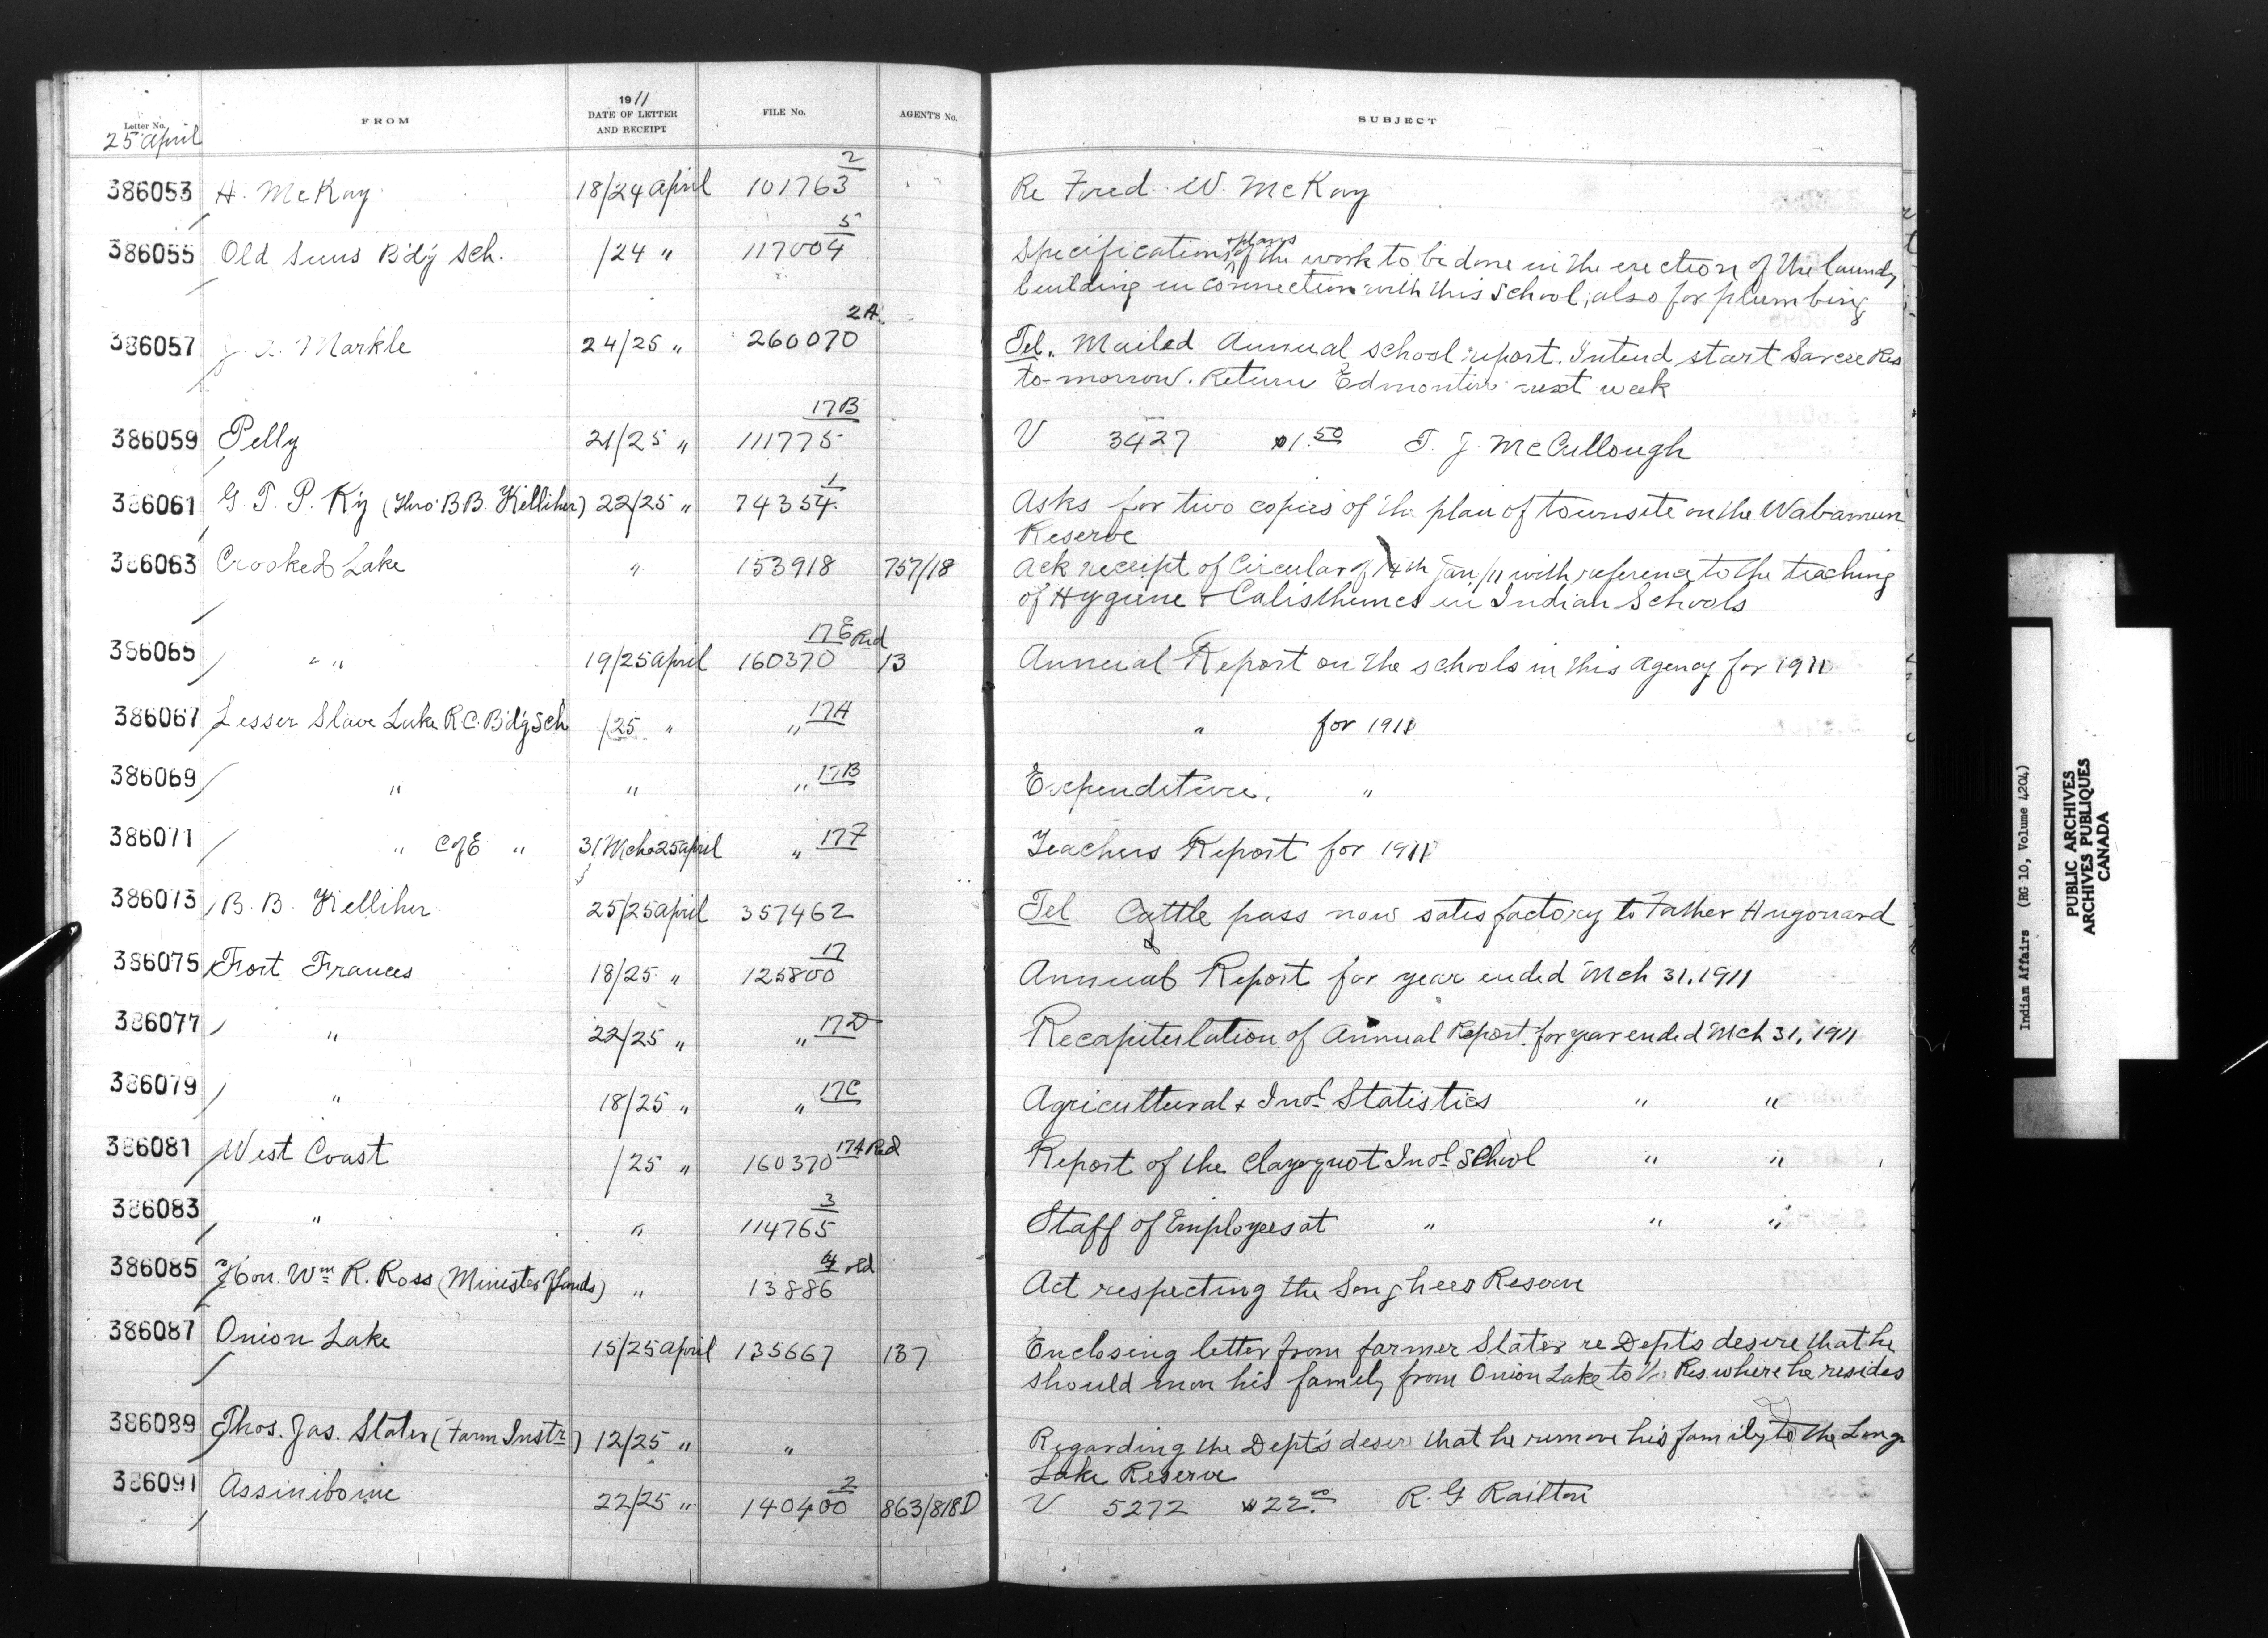 Letter No. FROM 1911 DATE OF LETTER AND RECEIPT FILE No. AGENT'S No. SUBJECT
25 April
386053 H. McKay 18/24 April 101763 2 Re Fred W. McKay
386055 Old Suns Bdg Sch. /24 " 117004 5 Specifications & plans of the work to be done in the erection of the laundry
building in connection with this School, also for plumbing
386057 J. A. Markle 24/25 " 260070 2A Tel. Mailed Annual school report. Intend start Sarcee Res
to-morrow. Return Edmonton next week
386059 Pelly 21/25 " 111775 17B V 3427 $1.50 T. J. McCullough
386061 G. T. P. Ry (Thro' B.B. Kelliher) 22/25 " 74354 1 Asks for two copies of the plan of townsite on the Wabamun
Reserve
386063 Crooked Lake " 153918 757/18 Ack receipt of Circular of 14th Jan/11 with reference to the teaching
of Hygiene & Calisthenics in Indian Schools
386065 " " 19/25 April 160370 17E Red 13 Annual Report on the schools in this Agency for 1911
386067 Lesser Slave Lake R.C. Bdg Sch /25 " " 17A " for 1911
386069 " " " 17B Expenditure, "
386071 " C of E " 31 Mch 25 April " 17F Teachers Report for 1911
386073 B. B. Kelliher 25/25 April 357462 Tel Cattle pass now satisfactory to Father Hugonard
386075 Fort Frances 18/25 " 125800 17 Annual Report for year ended Mch 31, 1911
386077 " 22/25 " " 17D Recapitulation of Annual Report for year ended Mch 31, 1911
386079 " 18/25 " " 17C Agricultural & Indl Statistics " "
386081 West Coast /25 " 160370 17A Red Report of the Clayoquot Indl School " "
386083 " " 114765 3 Staff of Employees at " " "
386085 Hon. Wm R. Ross (Minister of Lands) " 13886 4 old Act respecting the Songhees Reserve
386087 Onion Lake 15/25 April 135667 137 Enclosing letter from farmer Slater re Dept's desire that he
should move his family from Onion Lake to the Res. where he resides
386089 Thos. Jas. Slater (Farm Instr) 12/25 " " Regarding the Dept's desire that he remove his family to the Long
Lake Reserve
386091 Assiniboine 22/25 " 140400 2 863/818D V 5272 $22.00 R. G Railton
Indian Affairs (RG 10, Volume 4204)
PUBLIC ARCHIVES
ARCHIVES PUBLIQUES
CANADA